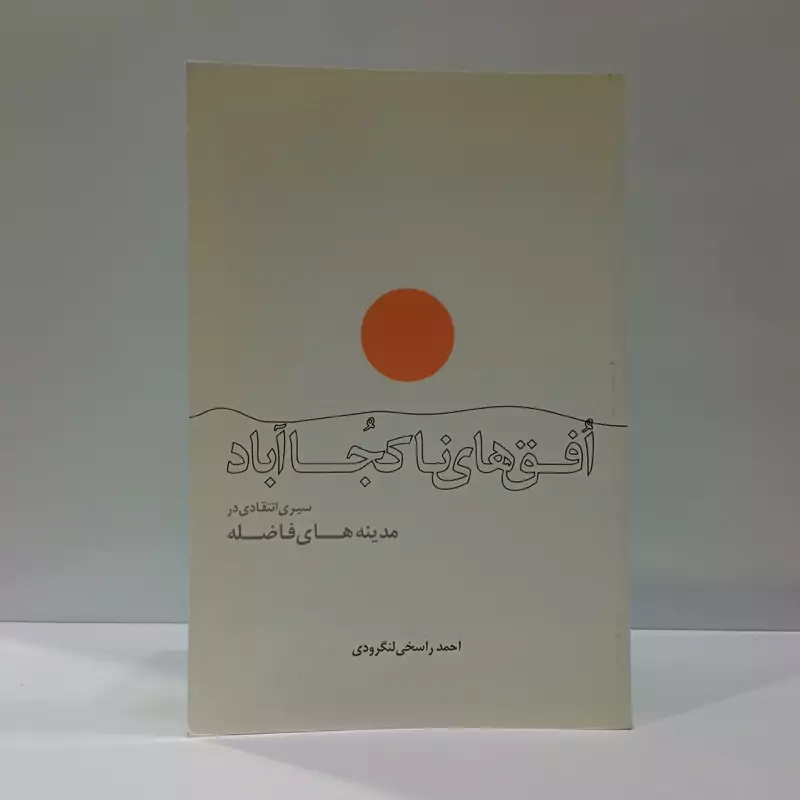 اُفق‌های ناکجُاآباد
سیری انتقادی در
مدینه‌های فاضله
احمد راسخی لنگرودی